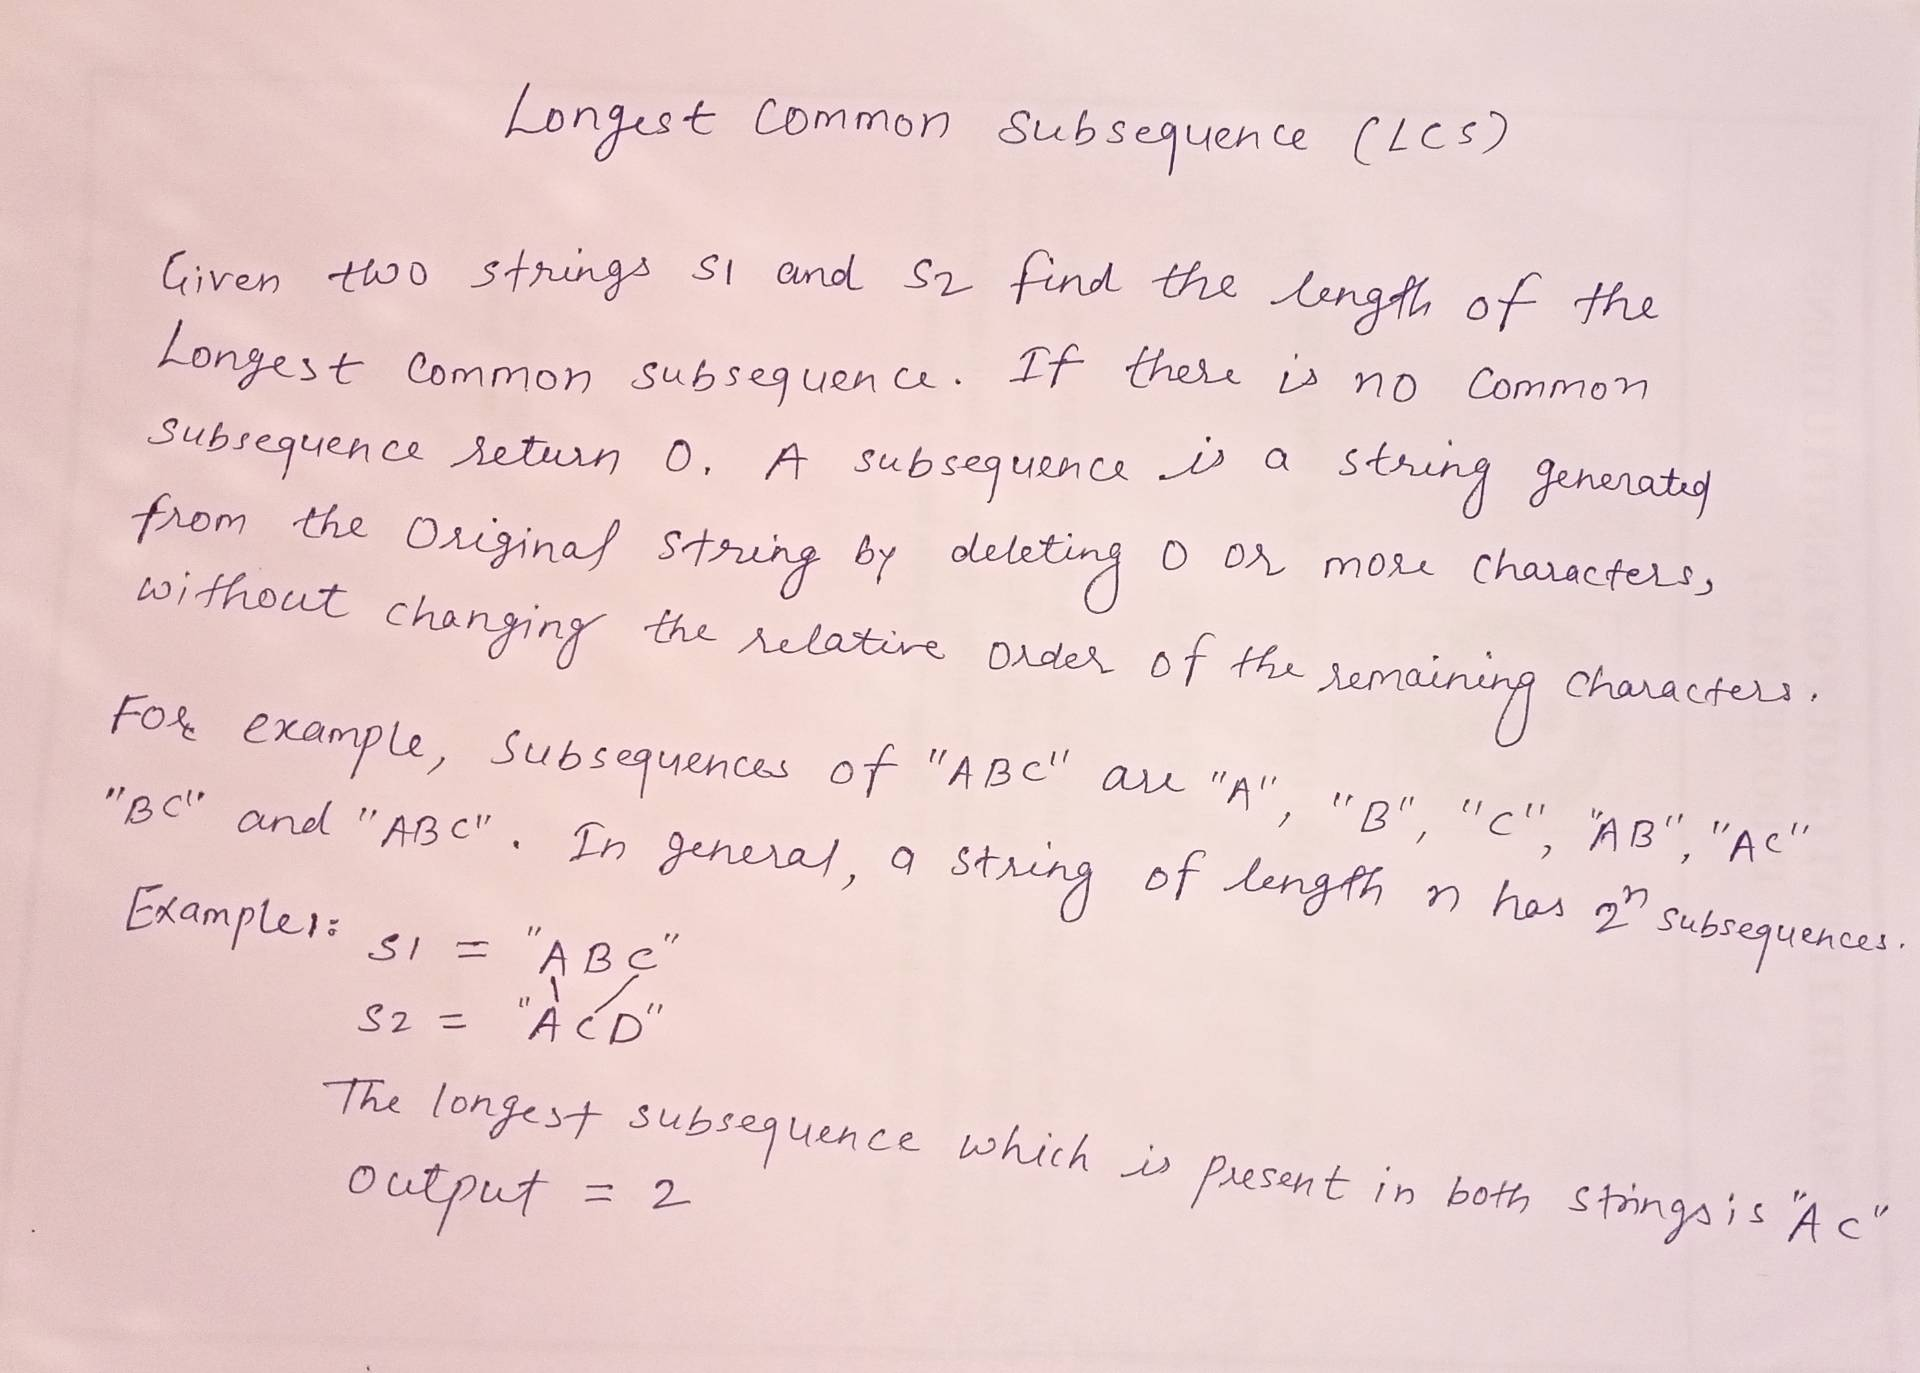 Longest Common Subsequence (LCS)
Given two strings S1 and S2 find the length of the
Longest Common subsequence. If there is no Common
subsequence return 0. A subsequence is a string generated
from the Original string by deleting 0 or more characters,
without changing the relative order of the remaining characters.
For example, Subsequences of "ABC" are "A", "B", "C", "AB", "AC"
"BC" and "ABC". In general, a string of length n has 2ⁿ subsequences.
Example1:
S1 = "ABC"
S2 = "ACD"
The longest subsequence which is present in both strings is "AC"
Output = 2